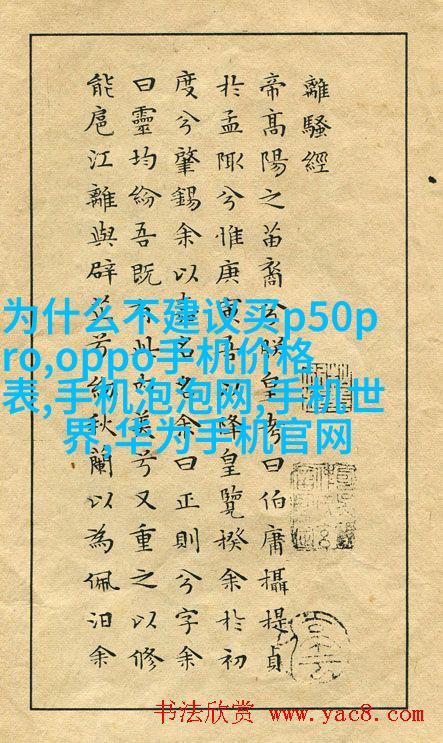 離騷經
帝高陽之苗裔兮朕皇考曰伯庸攝提貞
於孟陬兮惟庚寅吾以降皇覽揆余於初
度兮肇錫余以嘉名名余曰正則兮字余
曰靈均紛吾既有此內美兮又重之以修
能扈江離與辟芷兮紉秋蘭以為佩汨余
为什么不建议买p50p
ro,oppo手机价格
表,手机泡泡网,手机世
界,华为手机官网
书法欣赏 www.yac8.com